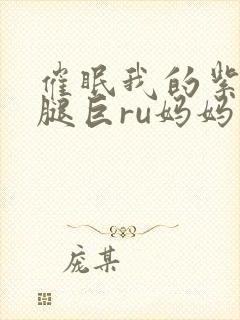 催眠我的紫
腿巨ru妈妈
庞某